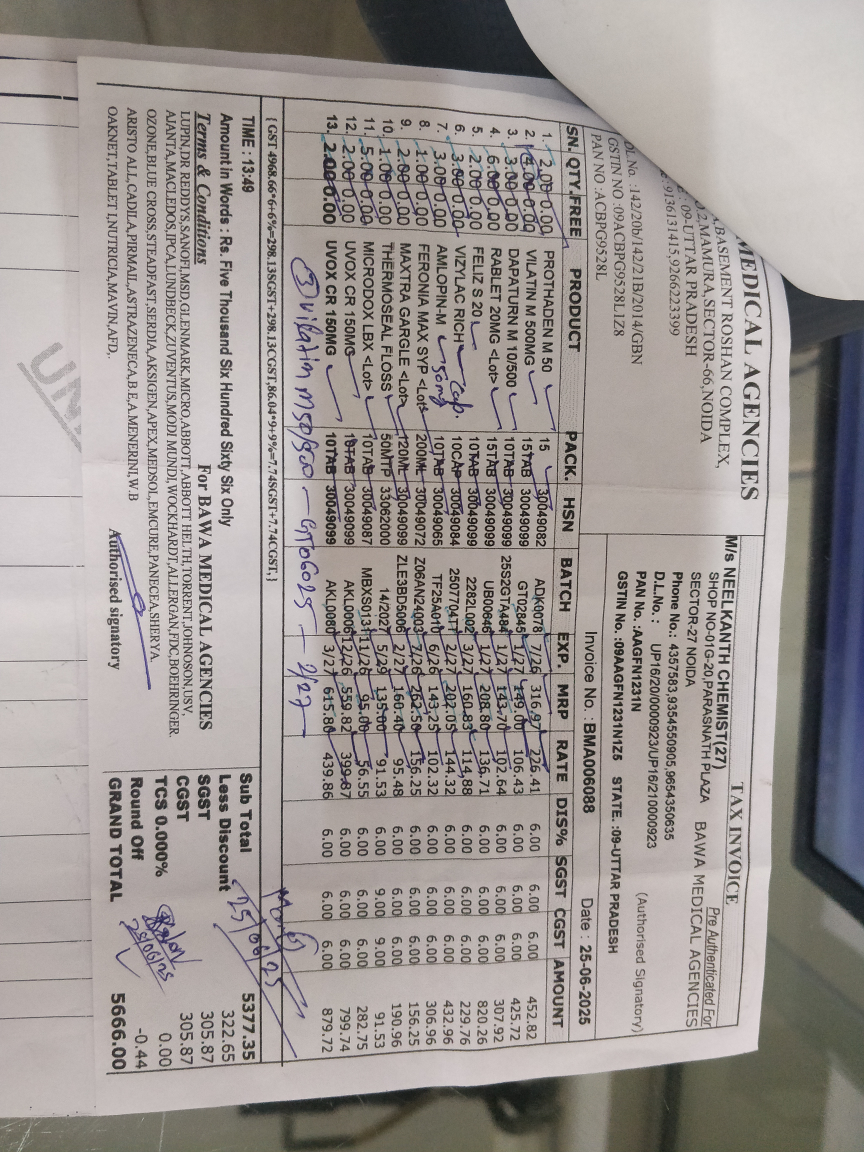 MEDICAL AGENCIES
BASEMENT ROSHAN COMPLEX,
MAMURA, SECTOR-66, NOIDA
: 09-UTTAR PRADESH
:9136131415,9266223399
DL.No. :142/20b/142/21B/2014/GBN
GSTIN NO :09ACBPG9528L1Z8
PAN NO :ACBPG9528L
TAX INVOICE
Pre Authenticated For
BAWA MEDICAL AGENCIES
(Authorised Signatory)
M/s NEELKANTH CHEMIST(27)
SHOP NO-01G-20,PARASNATH PLAZA
SECTOR-27 NOIDA
Phone No.: 4357583,9354550905,9654350635
D.L.No.: UP16/20/0000923/UP16/210000923
PAN No.:AAGFN1231N
GSTIN No.:09AAGFN1231N1Z5 STATE.:09-UTTAR PRADESH
Invoice No. : BMA006088 Date : 25-06-2025
SN. QTY.FREE PRODUCT PACK. HSN BATCH EXP. MRP RATE DIS% SGST CGST AMOUNT
1. 2.00 0.00 PROTHADEN M 50 15 30049082 ADK0078 7/26 316.97 226.41 6.00 6.00 6.00 452.82
2. 4.00 0.00 VILATIN M 500MG 15TAB 30049099 GT02845 1/27 149.00 106.43 6.00 6.00 6.00 425.72
3. 3.00 0.00 DAPATURN M 10/500 10TAB 30049099 25S2GTA484 1/27 143.70 102.64 6.00 6.00 6.00 307.92
4. 6.00 0.00 RABLET 20MG <Lot> 15TAB 30049099 UB00646 1/27 208.80 136.71 6.00 6.00 6.00 820.26
5. 2.00 0.00 FELIZ S 20 10TAB 30049099 2282L002 3/27 160.83 114.88 6.00 6.00 6.00 229.76
6. 3.00 0.00 VIZYLAC RICH Cap. 10CAP 30049084 2507704TT 2/27 202.05 144.32 6.00 6.00 6.00 432.96
7. 3.00 0.00 AMLOPIN-M 50mg 10TAB 30049065 TF25A010 6/26 143.25 102.32 6.00 6.00 6.00 306.96
8. 1.00 0.00 FERONIA MAX SYP <Lot> 200ML 30049072 Z06AN24003 7/26 262.50 156.25 6.00 6.00 6.00 156.25
9. 2.00 0.00 MAXTRA GARGLE <Lot> 120ML 30049099 ZLE3BD5006 2/27 160.40 95.48 6.00 6.00 6.00 190.96
10. 1.00 0.00 THERMOSEAL FLOSS 50MTP 33062000 14/2027 5/29 135.00 91.53 6.00 9.00 9.00 91.53
11. 5.00 0.00 MICRODOX LBX <Lot> 10TAB 30049087 MBXS0131 11/26 95.00 56.55 6.00 6.00 6.00 282.75
12. 2.00 0.00 UVOX CR 150MG 10TAB 30049099 AKL0006 12/26 559.82 399.87 6.00 6.00 6.00 799.74
13. 2.00 0.00 UVOX CR 150MG 10TAB 30049099 AKL0080 3/27 615.80 439.86 6.00 6.00 6.00 879.72
③ vilatin M 50/500 - GT06025 - 2/27
[ GST 4968.66*6+6%=298.13SGST+298.13CGST,86.04*9+9%=7.74SGST+7.74CGST,]
TIME : 13:49
Amount in Words : Re. Five Thousand Six Hundred Sixty Six Only
Terms & Conditions For BAWA MEDICAL AGENCIES
LUPIN,DR REDDYS,SANOFI,MSD,GLENMARK,MICRO,ABBOTT,ABBOTT HELTH,TORRENT,JOHNOSON,USV,
AJANTA,MACLEDOS,IPCA,LUNDBECK,ZUVENTUS,MODI MUNDI,WOCKHARDT,ALLERGAN,FDC,BOEHRINGER.
OZONE,BLUE CROSS,STEADFAST,SERDIA,AKSIGEN,APEX,MEDSOL,EMCURE,PANECEA,SHERYA.
ARISTO ALL,CADILA,PIRMAIL,ASTRAZENECA,B.E,A.MENERINI,W.B
OAKNET,TABLET I,NUTRICIA,MAVIN,AFD.
Authorised signatory
Sub Total 5377.35
Less Discount 322.65
SGST 305.87
CGST 305.87
TCS 0.000% 0.00
Round Off -0.44
GRAND TOTAL 5666.00
25/06/25
25/06/25